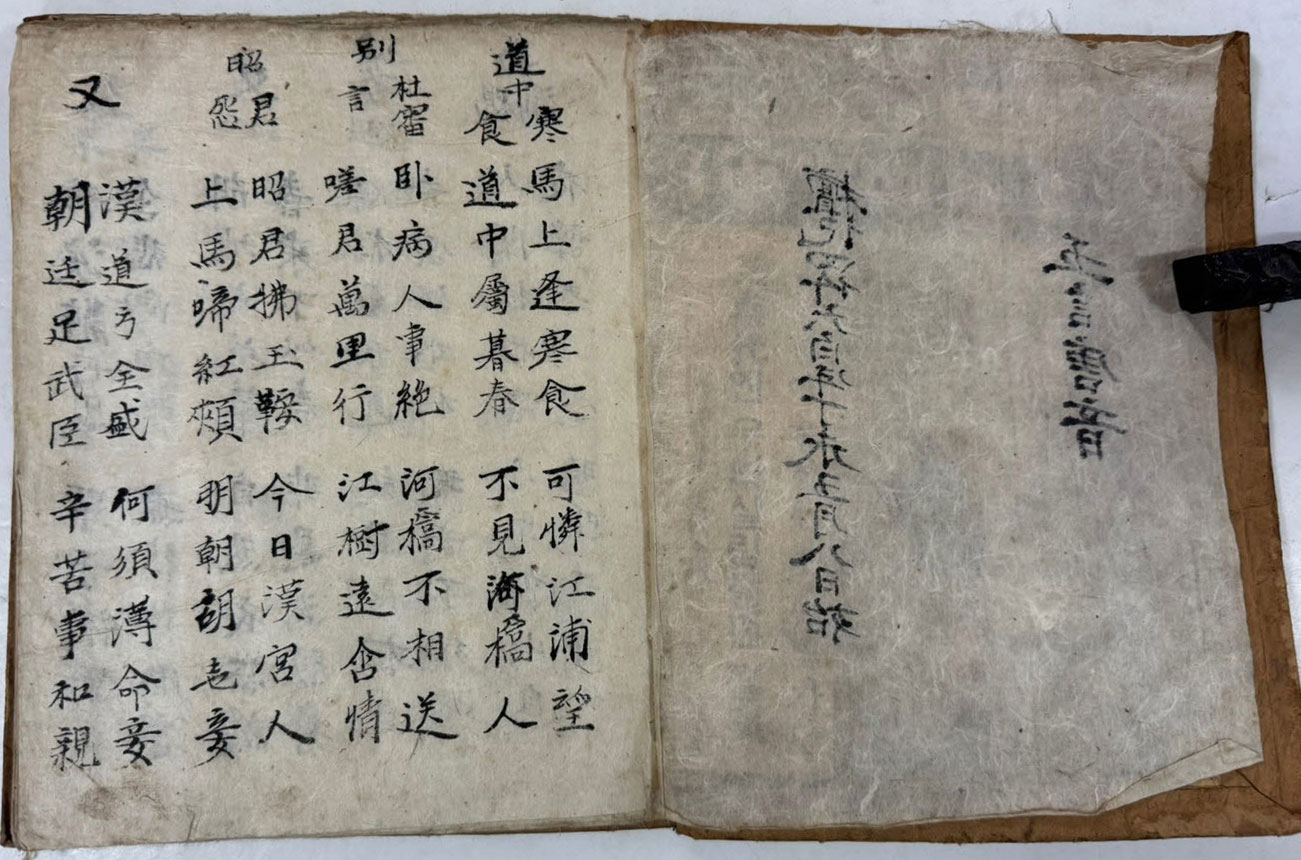 五言唐音
檀紀四阡六百年丁未五月八日始
道中寒食
馬上逢寒食 可憐江浦望
道中屬暮春 不見海橋人
別杜審言
卧病人事絶 河橋不相送
嗟君萬里行 江樹遠含情
昭君怨
昭君拂玉鞍 今日漢宮人
上馬啼紅頰 明朝胡地妾
又
漢道方全盛 何須薄命妾
朝廷足武臣 辛苦事和親